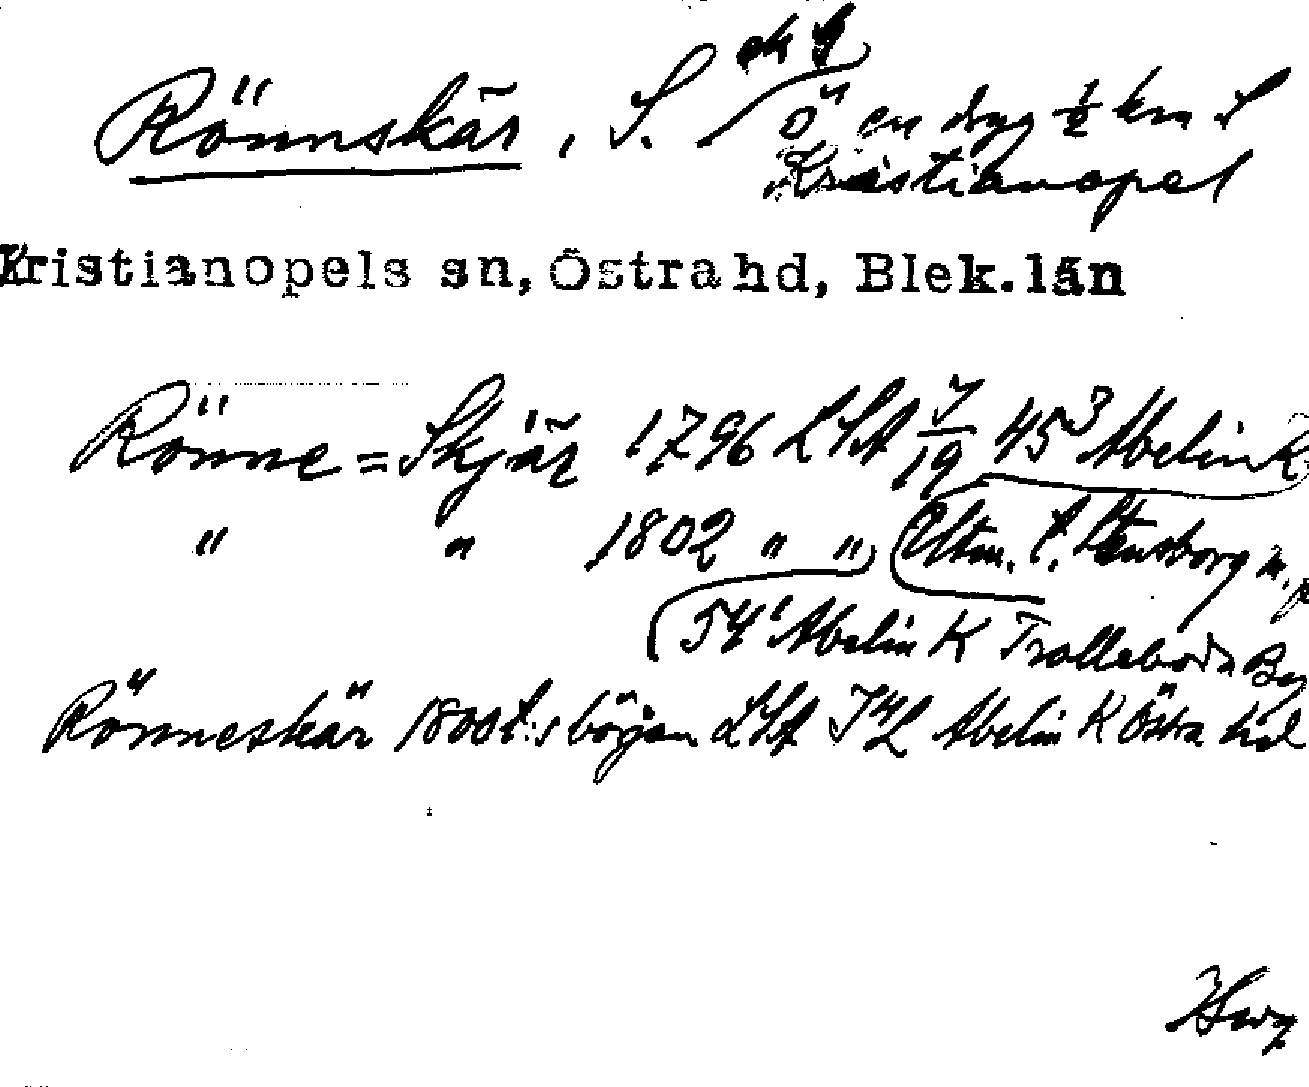 ek 9
Rönnskär, S. ö en dryg ½ km S
Kristianopel
Kristianopels sn, Östra hd, Blek. län
Rönne=Skjär 1796 LSA 7/19 45³ Abelin K
" " 1802 " " Oltm. t. Stensborg m.
54¹ Abelin K Trolleboda
Rönneskär 1800t:s början LSA Abelin K Östra hd